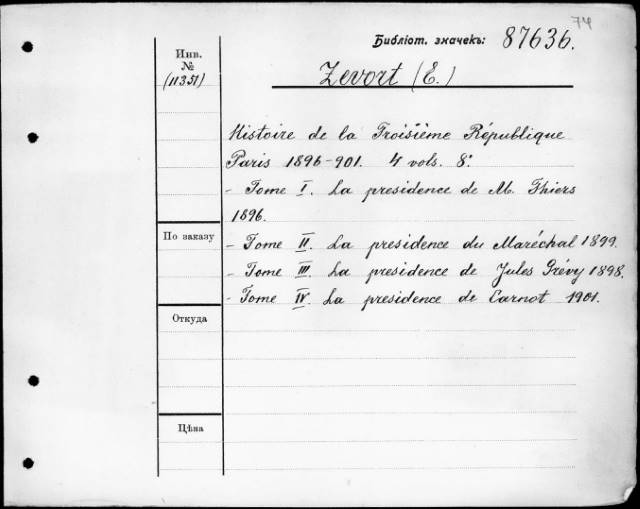 74
Библіот. значекъ: 87636.
Инв.
№
(11351)
Zevort (E.)
Histoire de la Troisième République
Paris 1896-901. 4 vols. 8º
- Tome I. La presidence de M. Thiers
1896.
По заказу
- Tome II. La presidence du Maréchal 1899.
- Tome III. La presidence de Jules Grévy 1898.
- Tome IV. La presidence de Carnot 1901.
Откуда
Цѣна